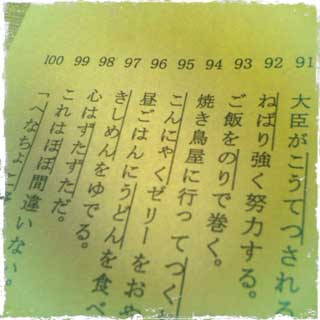 91 大臣がこうてつされる
92 ねばり強く努力する。
93 ご飯をのりで巻く。
94 焼き鳥屋に行ってつく
95 こんにゃくゼリーをお
96 昼ごはんにうどんを食べ
97 きしめんをゆでる。
98 心はずたずただ。
99 これはほぼ間違いない。
100 「へなちょこ